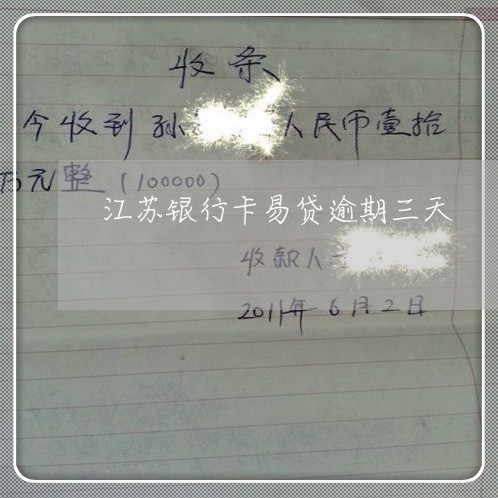 收条
今收到孙 人民币壹拾
万元整(100000)
江苏银行卡易贷逾期三天
收款人
2011年6月2日